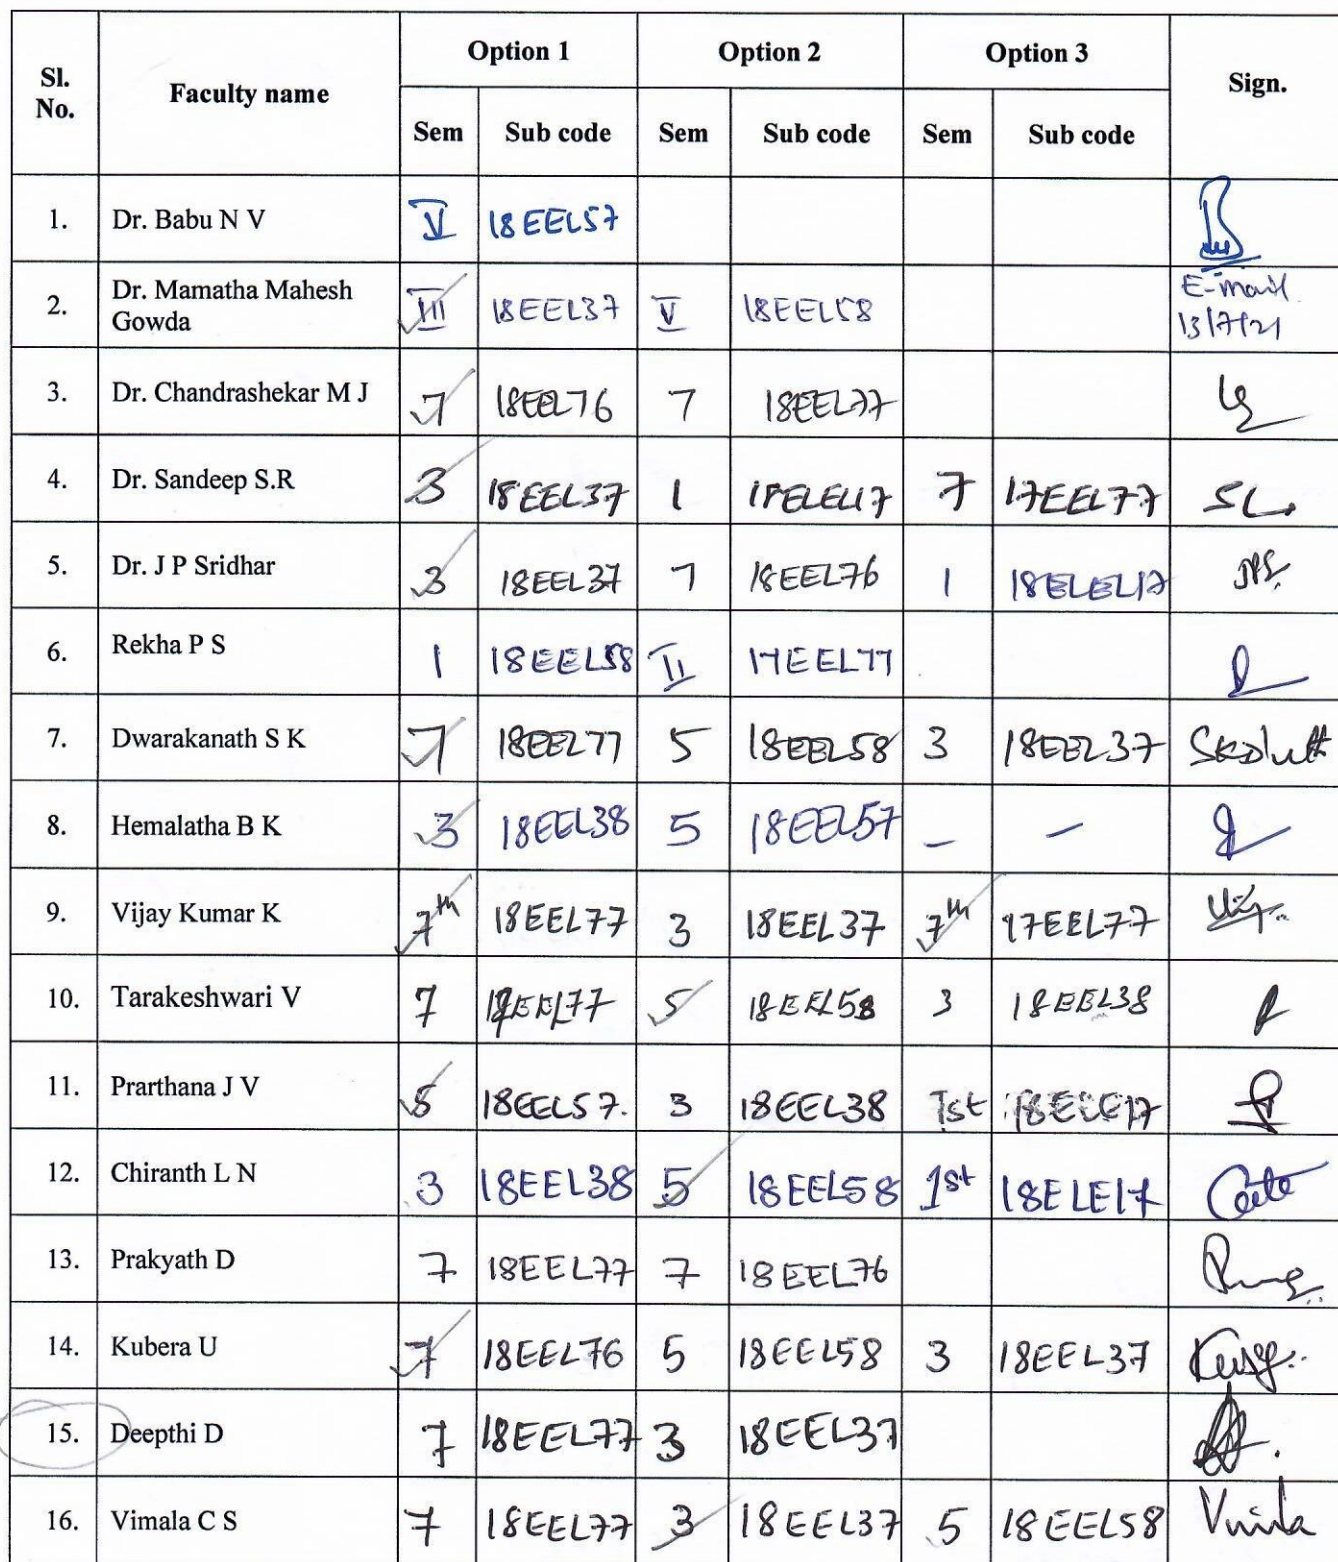 Sl. No. Faculty name Option 1 Option 2 Option 3 Sign.
Sem Sub code Sem Sub code Sem Sub code
1. Dr. Babu N V V 18EEL57
2. Dr. Mamatha Mahesh Gowda III 18EEL37 V 18EEL58 E-mail 13/7/21
3. Dr. Chandrashekar M J 7 18EEL76 7 18EEL77
4. Dr. Sandeep S.R 3 18EEL37 1 18ELEL17 7 17EEL77
5. Dr. J P Sridhar 3 18EEL37 7 18EEL76 1 18ELEL17
6. Rekha P S 1 18EEL58 II 17EEL77
7. Dwarakanath S K 7 18EEL77 5 18EEL58 3 18EEL37
8. Hemalatha B K 3 18EEL38 5 18EEL57 – –
9. Vijay Kumar K 7th 18EEL77 3 18EEL37 7th 17EEL77
10. Tarakeshwari V 7 18EEL77 5 18EEL58 3 18EEL38
11. Prarthana J V 5 18EEL57. 3 18EEL38 Ist 18ELE17
12. Chiranth L N 3 18EEL38 5 18EEL58 1st 18ELE17
13. Prakyath D 7 18EEL77 7 18EEL76
14. Kubera U 7 18EEL76 5 18EEL58 3 18EEL37
15. Deepthi D 7 18EEL77 3 18EEL37
16. Vimala C S 7 18EEL77 3 18EEL37 5 18EEL58 Vimla